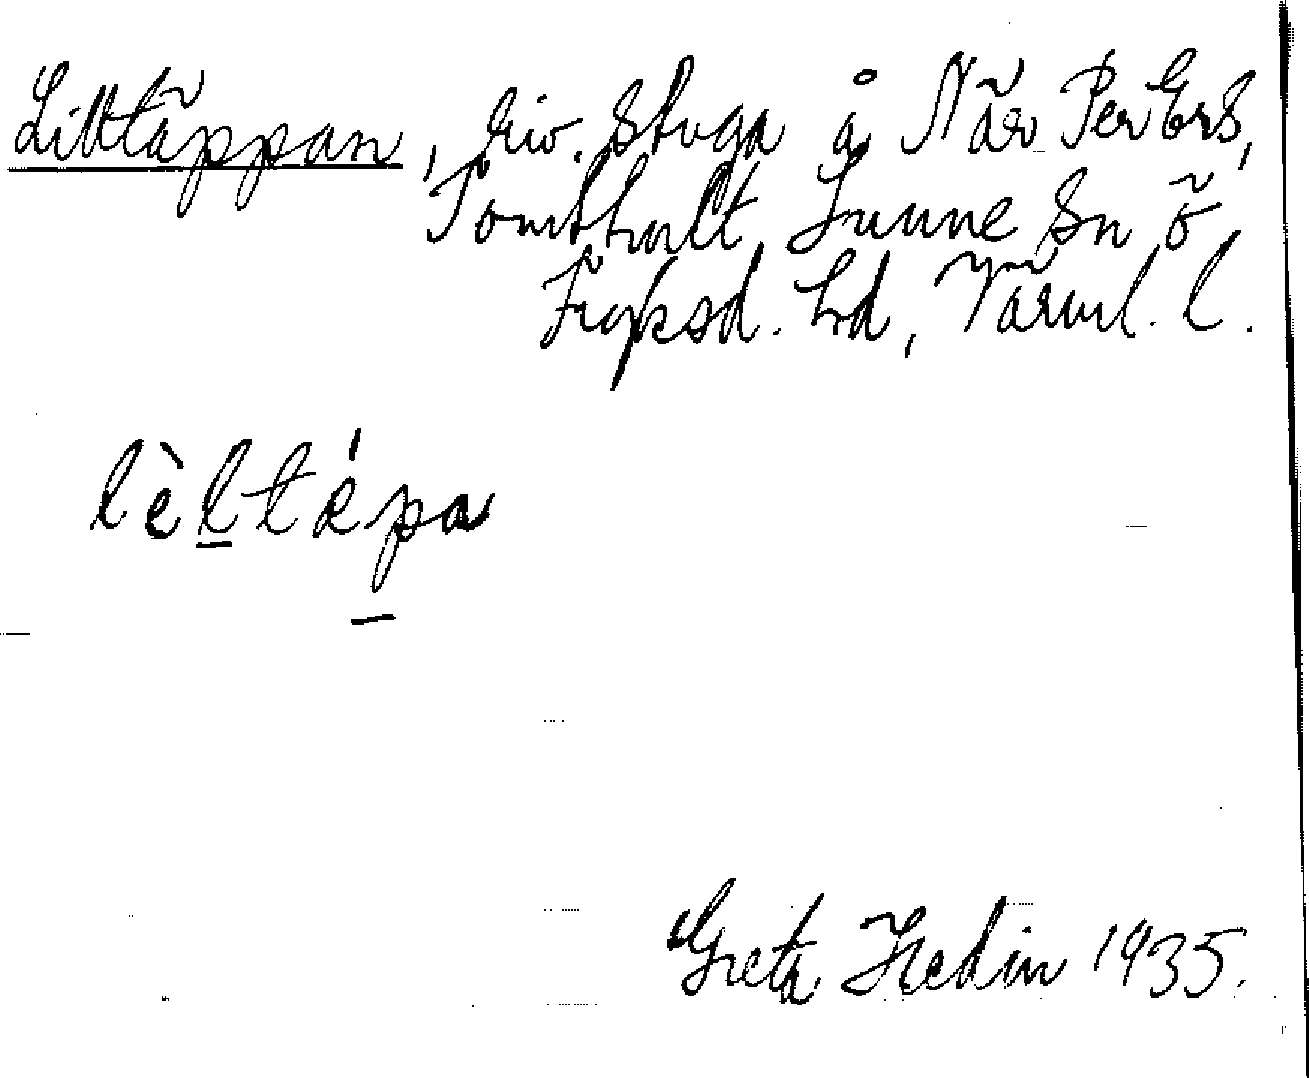 Lilltäppan, riv. stuga å När Per Ers,
Tomthult Sunne sn Ö
Fryksd. hd, Värml. l.
lèltépa
Greta Hedin 1935.